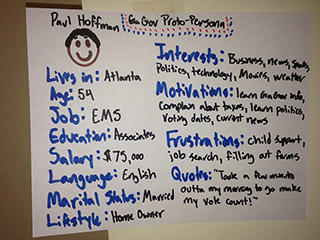 Paul Hoffman
GaGov Proto-Persona
Lives in: Atlanta
Age: 54
Job: EMS
Education: Associates
Salary: $75,000
Language: English
Marital Status: Married
Lifestyle: Home Owner
Interests: Business, news, Sports,
Politics, technology, Movies, weather
Motivations: learn GaGov info,
Complain about taxes, learn politics,
voting dates, current news
Frustrations: child support,
job search, filling out forms
Quotes: "Took a few minutes
outta my morning to go make
my vote count!"